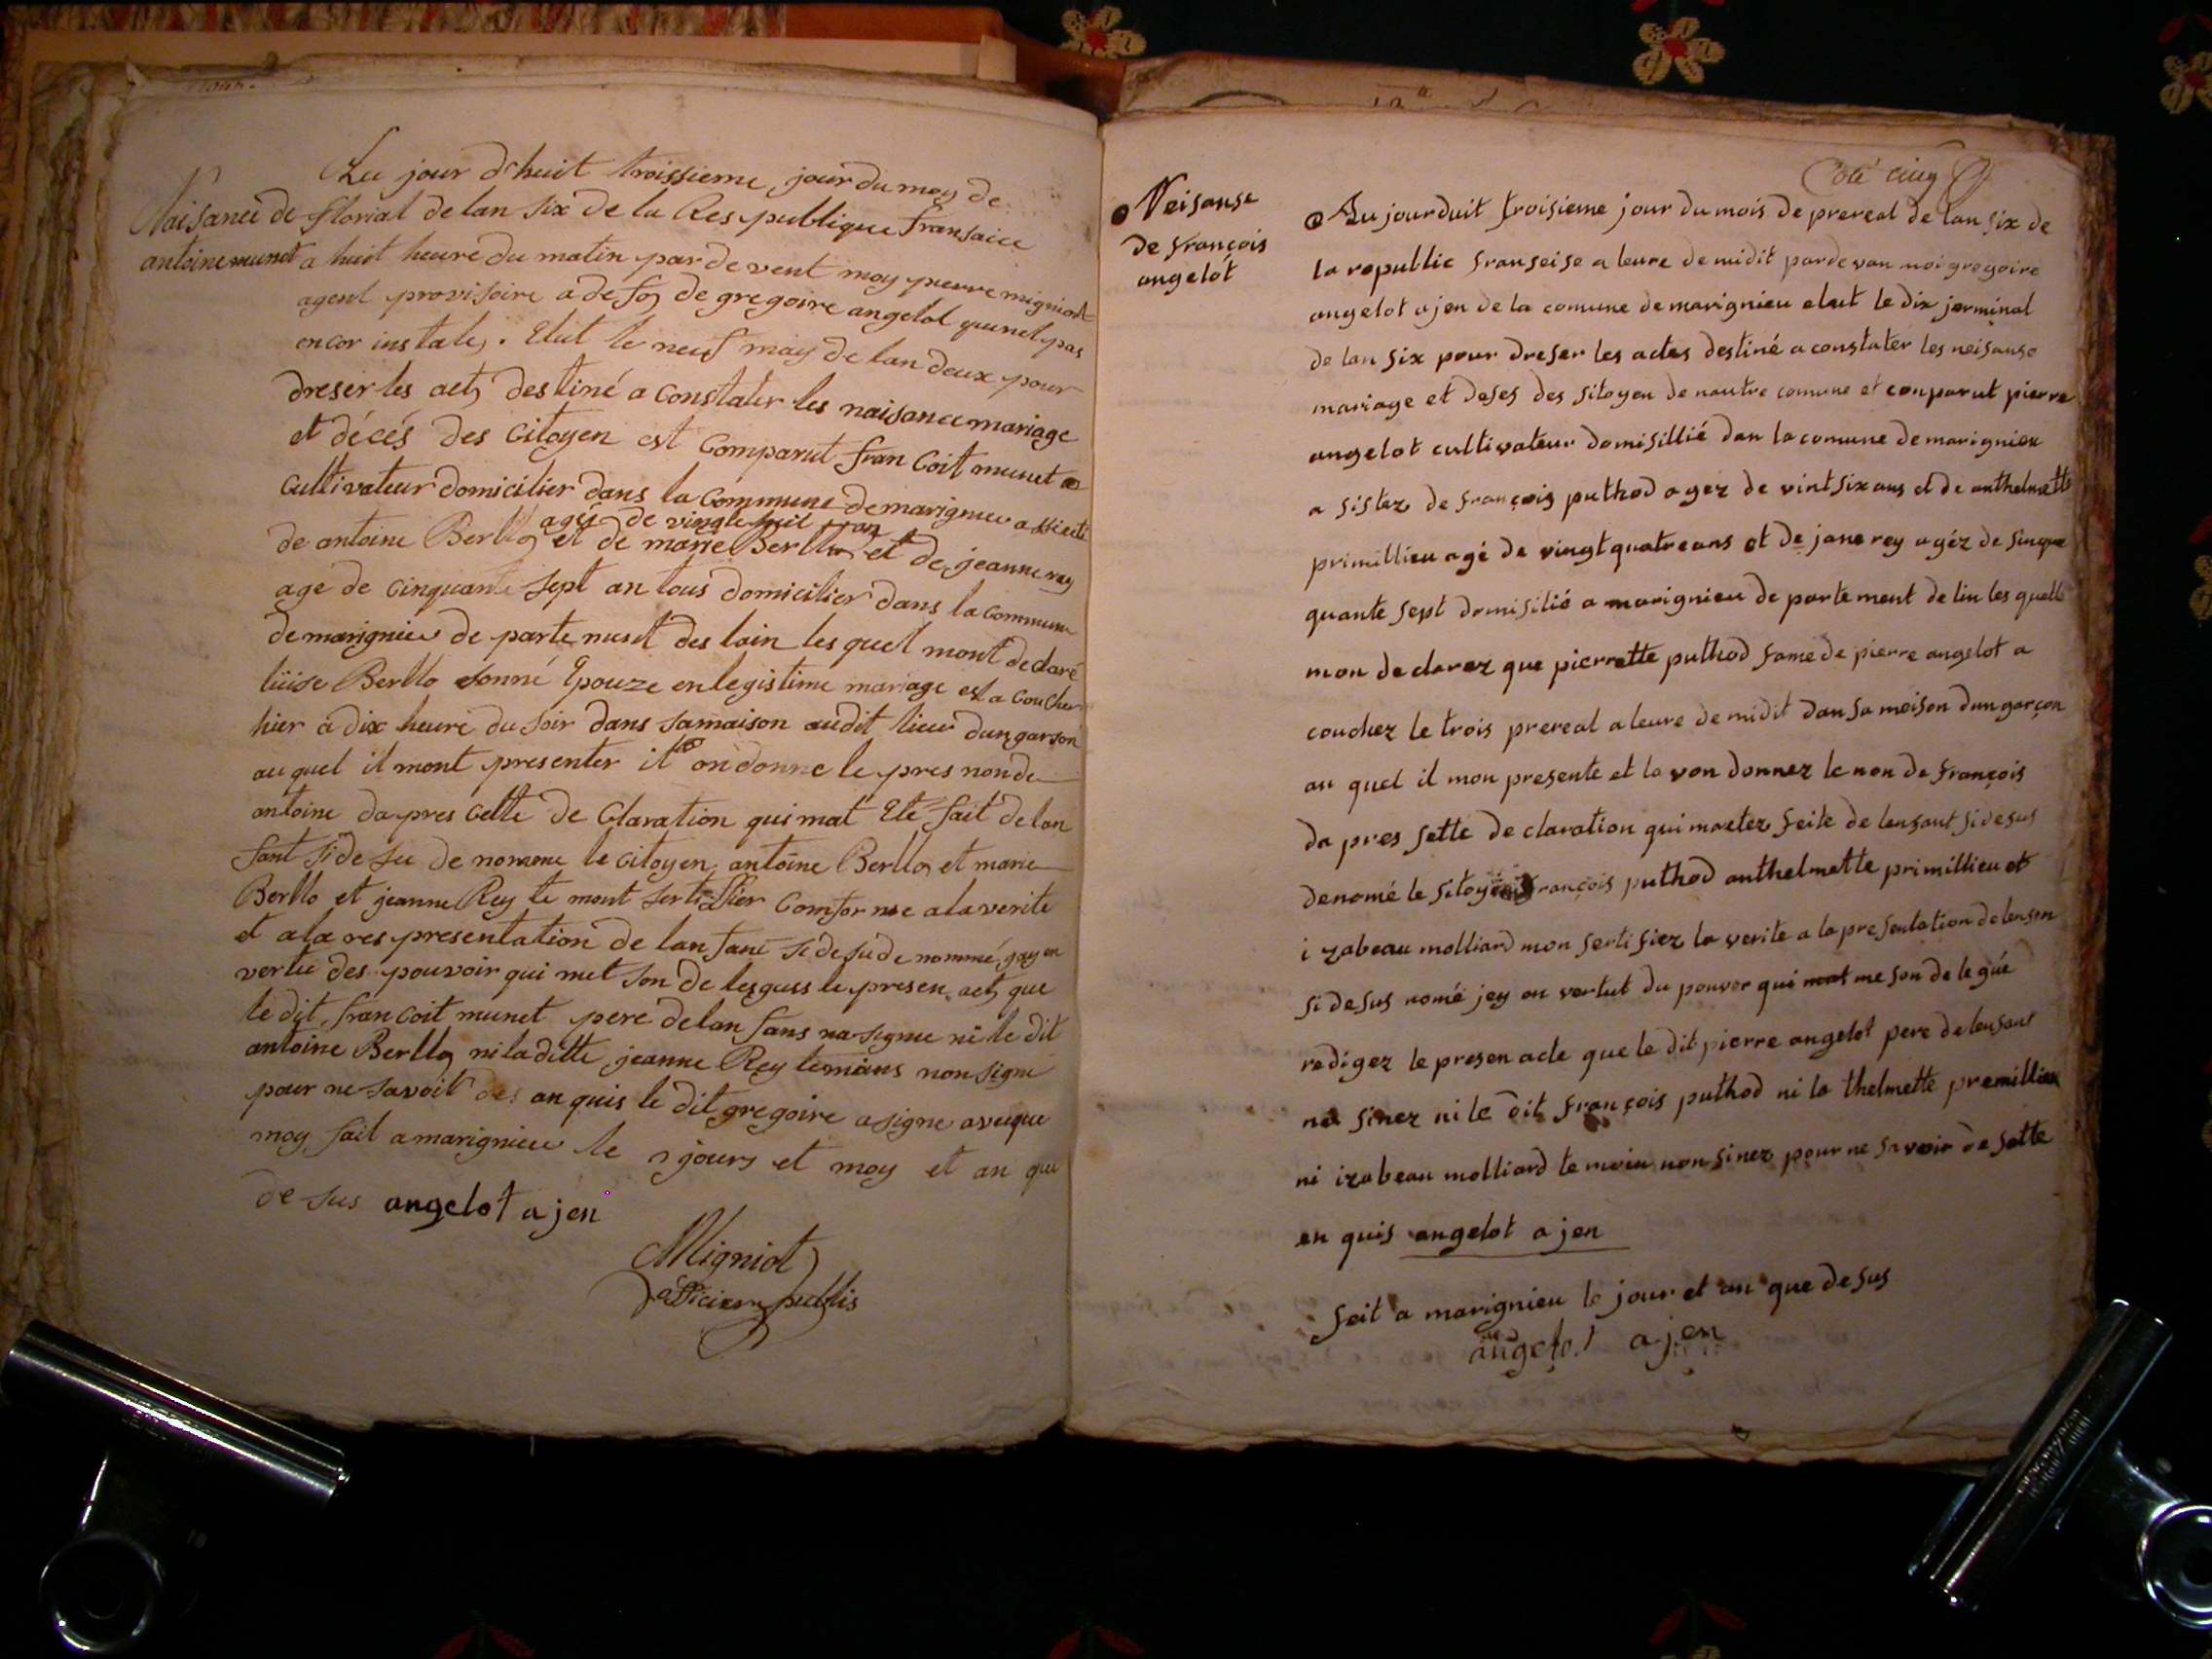 Au jour d'huit troissieme jour du moy de
Naisance de florial de lan six de la Res publique fransaice
antoine munet a huit heure du matin par de vent moy pierre migniot
agent provisoire a de fos de gregoire angelot qui net pas
encor instales. Elut le neuf may de lan deux pour
dreser les acts destiné a constater les naisance mariage
et décés des Citoyen est Comparut fran Coit munet
Cultivateur domicilier dans la Commune de marignieu assisté
agée de vingt huit an
de antoine Berllo et de marie Berllo et de jeanne rey
age de cinquante sept an tous domicilier dans la commune
de marignieu de parte ment des lain les quel mont declaré
luise Berllo sonné Epouze en legistime mariage est a coucher
hier a dix heure du soir dans samaison audit lieu dun garson
au quel il mont presenter il on donne le pres non de
antoine da pres Cette de Claration qui mat Eté fait de lan
fant si de su de nomme le citoyen antoine Berllo et marie
Berllo et jeanne Rey te mont sertiffier Comfor me a la verite
et a la res presentation de lan fant si de su de nommé jay en
vertu des pouvoir qui met son de legues le presen act que
le dit fran coit munet pere de lan fans na signe ni le dit
antoine Berllo ni la ditte jeanne Rey temains non signe
pour ne savoit des an quis le dit gregoire a signe aveque
moy fait a marignieu le jours et moy et an que
de sus angelot ajen
Migniot
officier publis
Coté cinq
Neisanse
de françois
angelot
Au jourduit troisieme jour du mois de prereal de lan six de
la republic franseise a leure de midit par de van moi gregoire
angelot ajen de la comune de marignieu elut le dix jerminal
de lan six pour dreser les actes destiné a constater les neisanse
mariage et deses des sitoyen de nautre comune et conparut pierre
angelot cultivateur domisillié dan la comune de marignieu
a sistez de françois puthod agez de vint six ans et de anthelmette
primillieu agé de vingt quatre ans et de jane rey agéz de sinque
quante sept domisilié a marignieu de parte ment de lin les quell
mon declarez que pierrette puthod fame de pierre angelot a
couchez le trois prereal a leure de midit dan sa meison dun garçon
au quel il mon presente et la von donnez le non de françois
da pres sette de claration qui maetez feite de lenfant si desus
denomé le sitoyen françois puthod anthelmette primillieu et
i zabeau molliard mon sertifiez la verite a la presentation de lenfen
si desus nomé jey en vertut du pouver qui mat me son de le gué
redigez le presen acte que le dit pierre angelot pere de lenfant
na sinez ni le dit françois puthod ni la thelmette premillieu
ni izabeau molliard te moin non sinez pour ne savoir de sette
en quis angelot ajen
feit a marignieu le jour et an que desus
angelot ajen